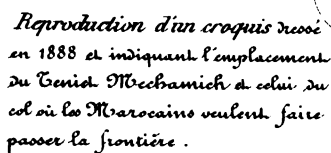 Reproduction d'un croquis dressé
en 1888 et indiquant l'emplacement
du Teniet Mechamich et celui du
col où les Marocains veulent faire
passer la frontière.